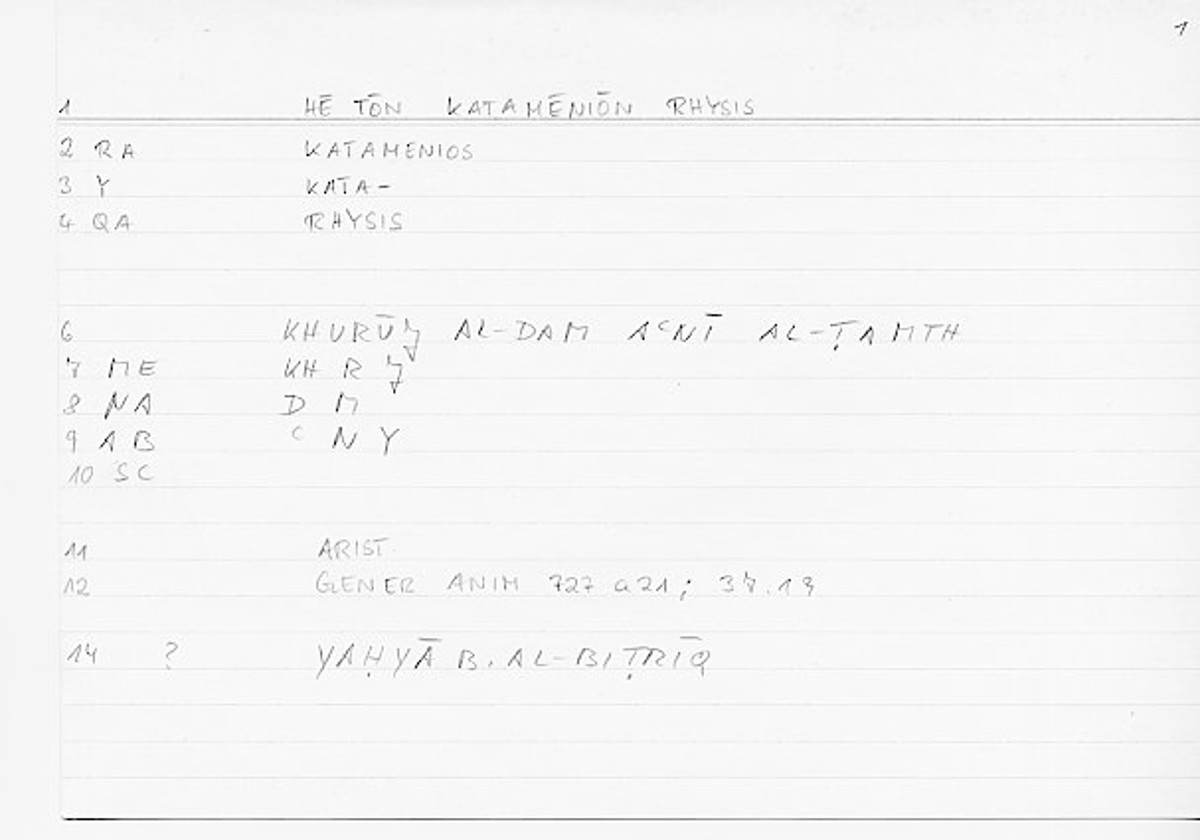 1
1 HĒ TŌN KATAMĒNIŌN RHYSIS
2 RA KATAMENIOS
3 Y KATA-
4 QA RHYSIS
6 KHURŪJ AL-DAM AᶜNĪ AL-ṬAMTH
7 ME KH R J
8 NA D M
9 AB ᶜ N Y
10 SC
11 ARIST.
12 GENER ANIM 727 a21; 37.13
14 ? YAḤYĀ B. AL-BIṬRĪQ